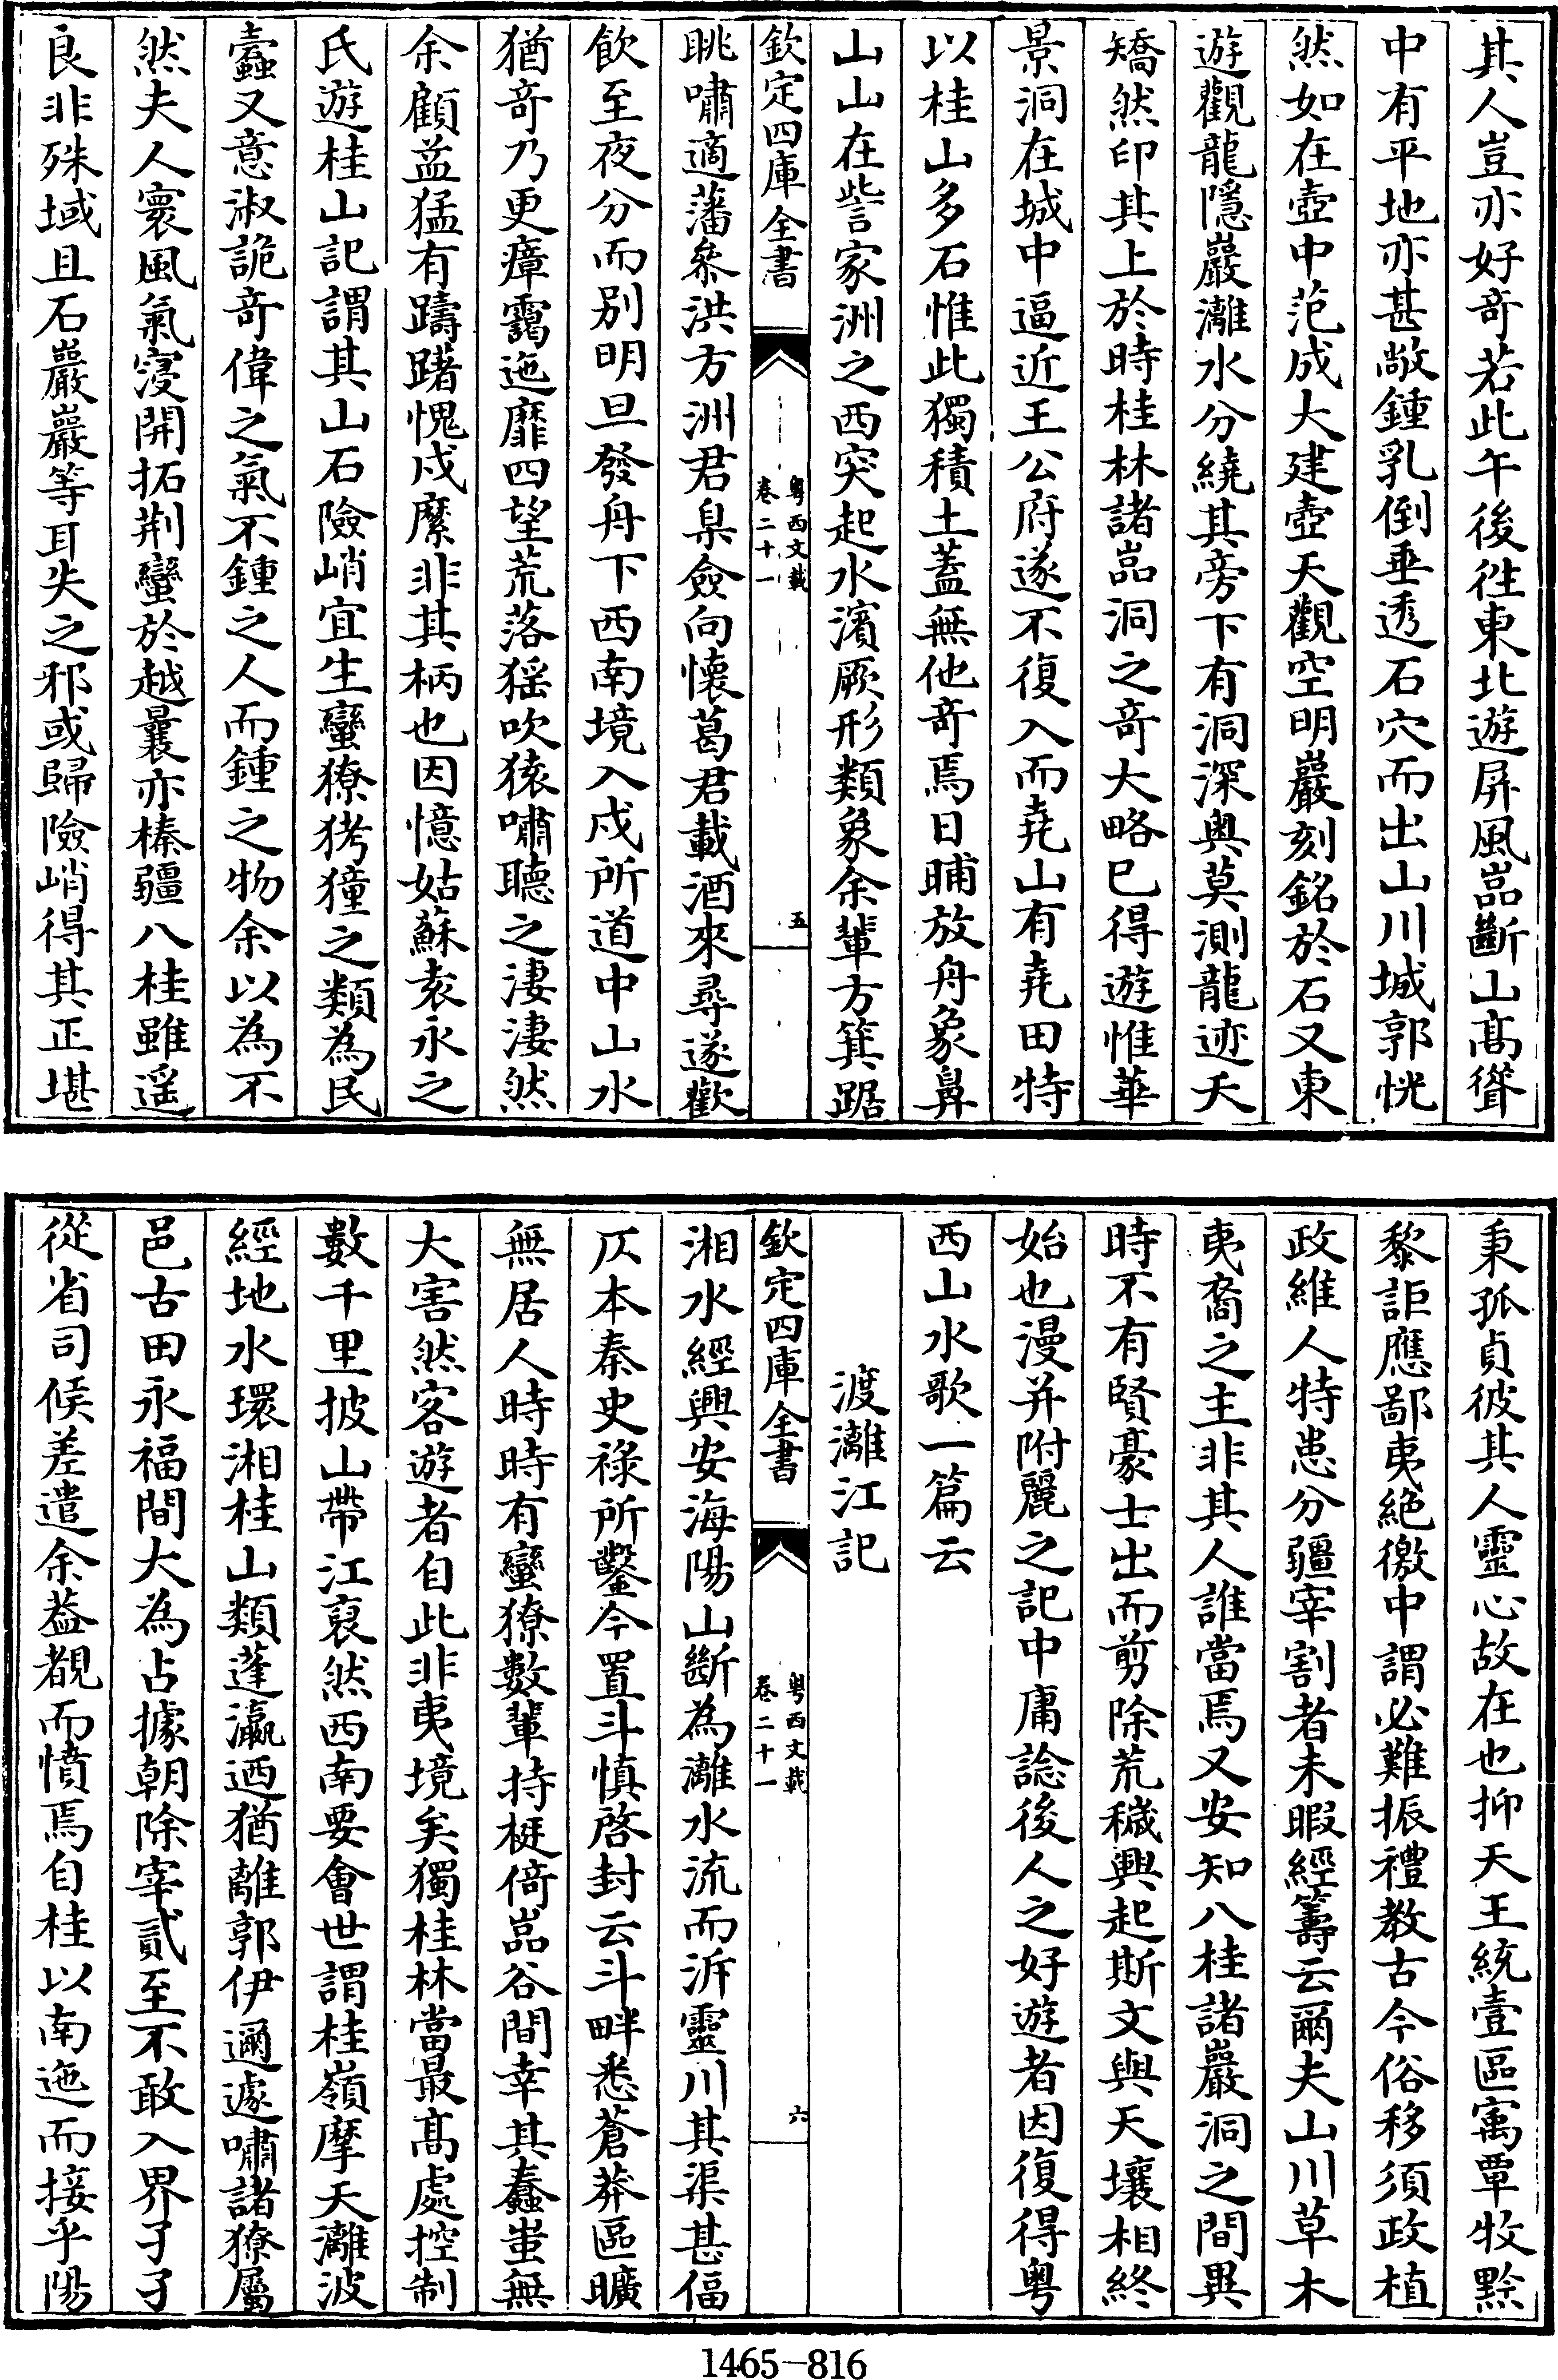 其人豈亦好奇若此午後徃東北遊屏風嵓斷山髙聳
中有平地亦甚敞鍾乳倒垂透石穴而出山川城郭恍
然如在壺中范成大建壺天觀空明巖刻銘於石又東
遊觀龍隱巖灕水分繞其旁下有洞深奥莫測龍迹夭
矯然印其上於時桂林諸嵓洞之奇大略已得遊惟華
景洞在城中逼近王公府遂不復入而堯山有堯田特
以桂山多石惟此獨積土蓋無他奇焉日晡放舟象鼻
山山在訾家洲之西突起水濱厥形類象余輩方箕踞
欽定四庫全書
粤西文載
卷二十一
五
眺嘯適藩叅洪方洲君臬僉向懐葛君載酒來尋遂歡
飲至夜分而别明旦發舟下西南境入戍所道中山水
猶奇乃更瘴靄迤靡四望荒落猺吹猿嘯聽之淒淒然
余顧益猛有躊躇愧戍縻非其柄也因憶姑蘇袁永之
氏遊桂山記謂其山石險峭宜生蠻獠狇獞之類為民
蠧又意淑詭奇偉之氣不鍾之人而鍾之物余以為不
然夫人寰風氣寖開拓荆蠻於越曩亦榛疆八桂雖遥
良非殊域且石巖巖等耳失之邪或歸險峭得其正堪
秉孤貞彼其人靈心故在也抑天王統壹區寓覃牧黔
黎詎應鄙夷絶徼中謂必難振禮教古今俗移須政植
政維人特患分疆宰割者未暇經籌云爾夫山川草木
夷裔之主非其人誰當焉又安知八桂諸巖洞之間異
時不有賢豪士出而剪除荒穢興起斯文與天壤相終
始也漫并附麗之記中庸諗後人之好遊者因復得粤
西山水歌一篇云
渡灕江記
欽定四庫全書
粤西文載
卷二十一
六
湘水經興安海陽山斷為灕水流而泝靈川其渠甚偪
仄本秦史禄所鑿今置斗慎啓封云斗畔悉蒼莽區曠
無居人時時有蠻獠數輩持梃倚嵓谷間幸其蠢蚩無
大害然客遊者自此非夷境矣獨桂林當最髙處控制
數千里披山帶江裒然西南要會世謂桂嶺摩天灕波
經地水環湘桂山類蓬瀛迺猶離郭伊邇遽嘯諸獠屬
邑古田永福間大為占據朝除宰貳至不敢入界孑孑
從省司候差遣余葢覩而憤焉自桂以南迤而接乎陽
1465-816